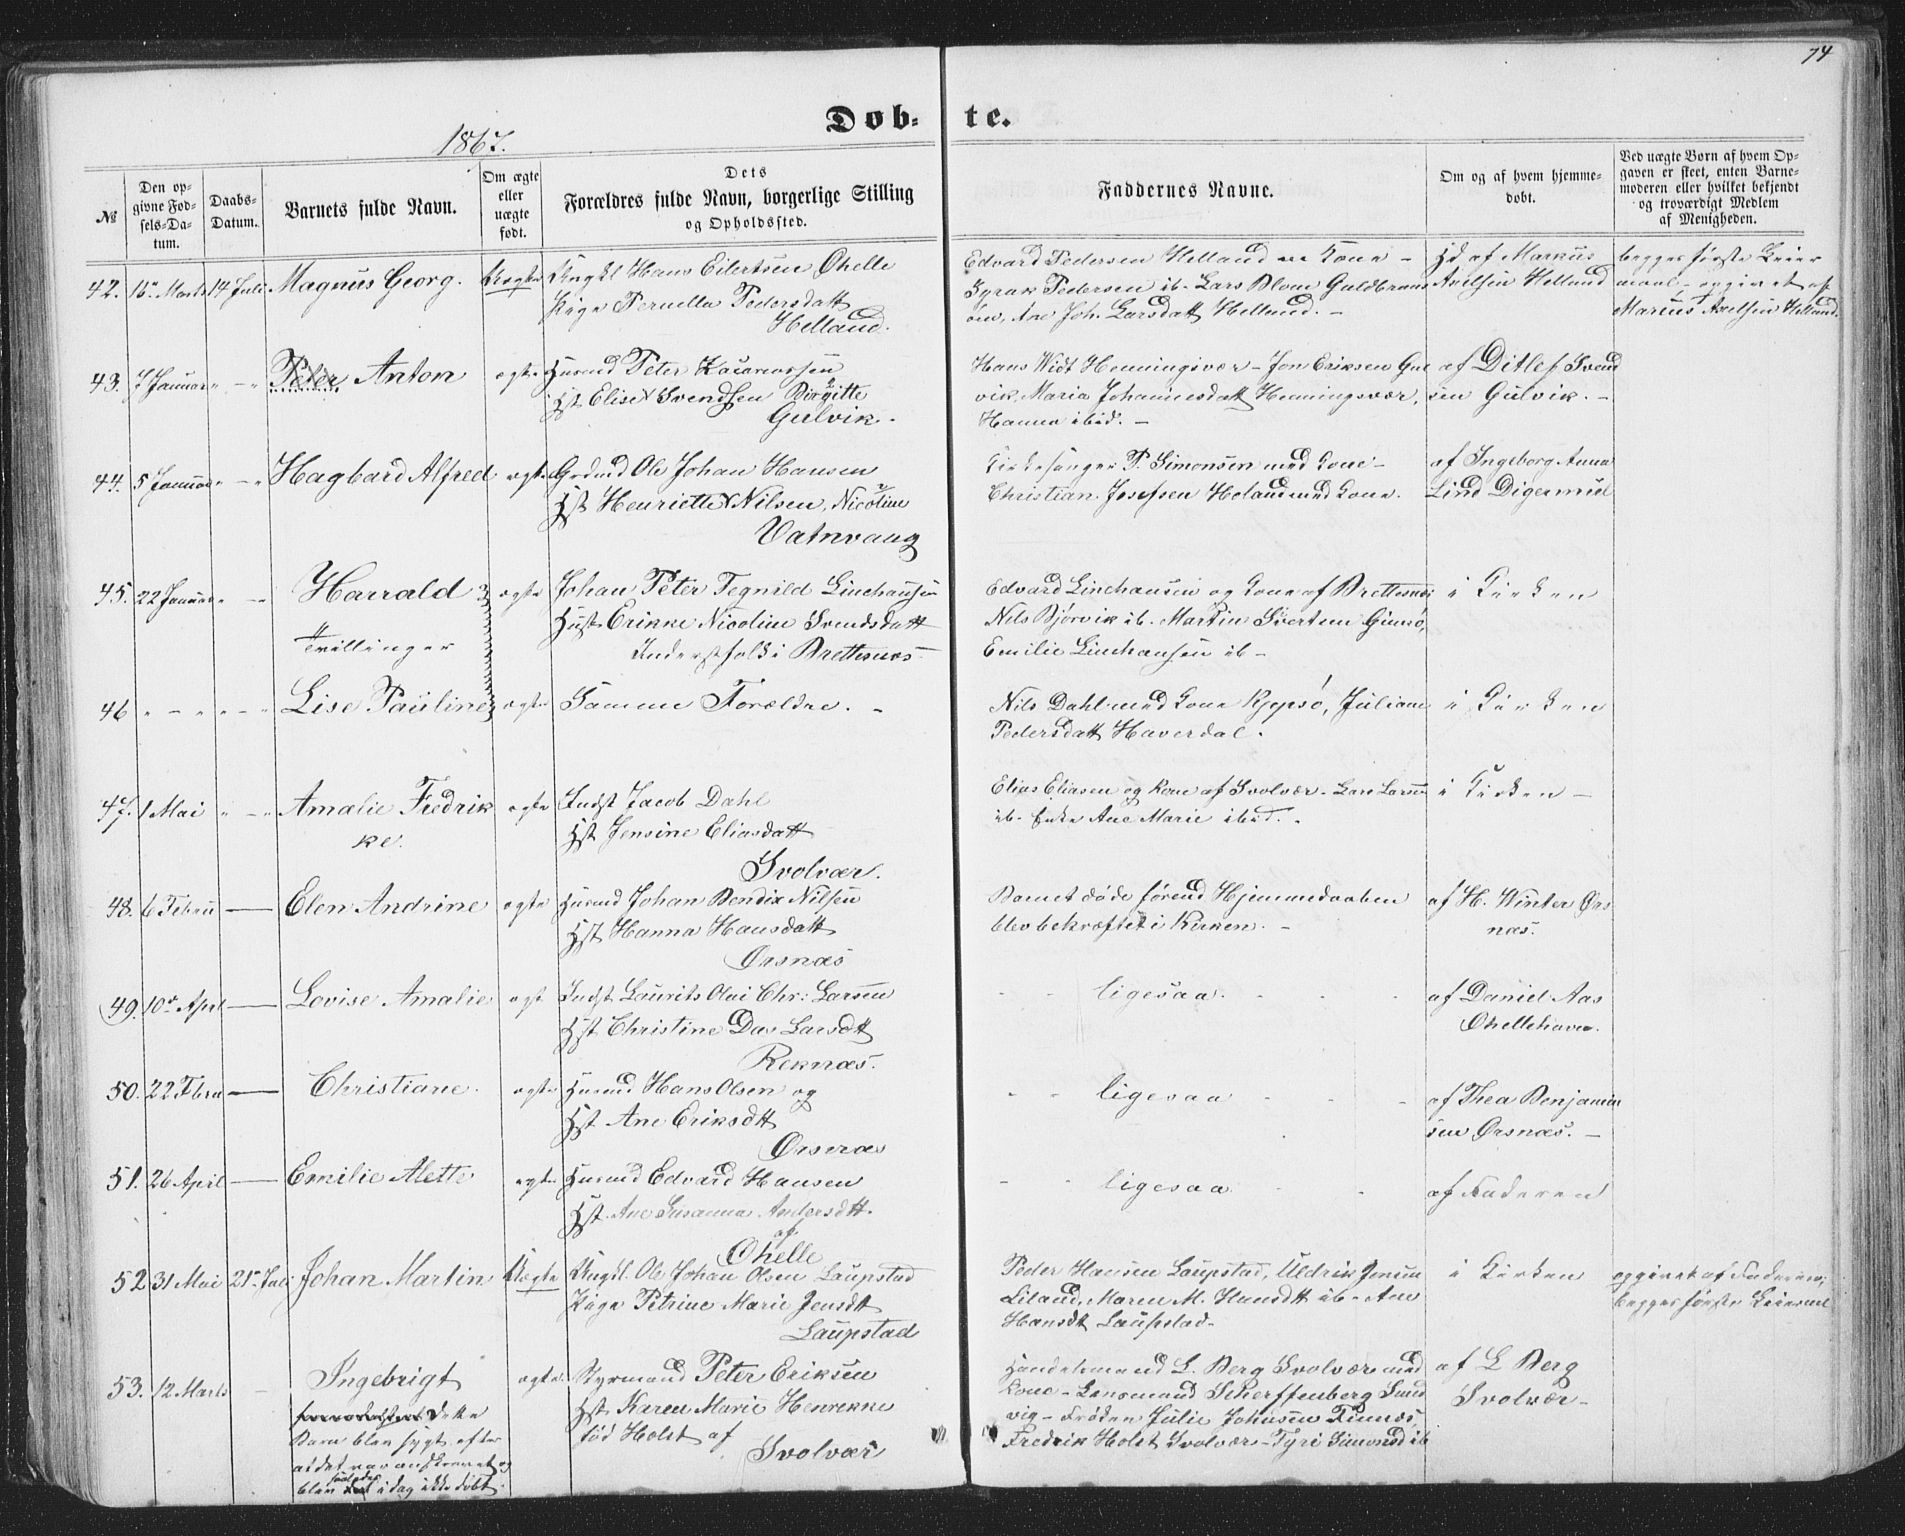 74
Døb-te.
1867.
№
Den op-
givne Fød-
sels-Da-
tum.
Daabs-
Datum.
Barnets fulde Navn.
Om ægte
eller
uægte
født.
Dets
Forældres fulde Navn, borgerlige Stilling
og Opholdssted.
Faddernes Navne.
Om og af hvem hjemme-
døbt.
Ved uægte Børn af hvem Op-
gaven er skeet, enten Barne-
moderen eller hvilket bekjendt
og troværdigt Medlem
af Menigheden.
42. 15de Marts 14 Juli Magnus Georg. Uægte Ungkl Hans Eilertsen Ohelle
Pige Pernella Pedersdatt
Helland.
Edvard Pedersen Helland Kone -
Syrak Pedersen ib- Lars Blom Guldbrand
øen, Ane Joh. Larsdatt Helland. -
Hd af Markus
Axelsen Helland
begges første Leier
maal - opgivet af
Marius Axelsen Helland.
43. 7 Januar " - " Peter Anton ægte Husmd Peter Rasmussen
Hst Elise Svendsen Birgitte
Gulvik.
Hans Widt Henningsvær - Jon Eriksen Gul
vik, Maria Johannesdatt Henningsvær,
Hanna ibid. -
af Ditlef Svend
sen Gulvik. -
44. 5 Januar " - " Hagbard Alfred ægte Grdmd Ole Johan Hansen
Hst Henriette Nilsen, Nicoline
Vatnvaag
Kirkesanger P. Simonsen med Kone -
Christian Josefsen Holand med Kone.
af Ingeborg Anna
Lind Digermul
45. 22 Januar " - " Harrald ægte Johan Peter Tegnild Linehausen
Hust Erikke Nicoline Svendsdatt
Inderstfolk i Brettesnæs
Tvillinger
Edvard Linehausen og Kone af Brettesnæs
Nils Bjørvik ib. Martin Sivertsen Gimsø,
Emilie Linehausen ib -
i Kirken
46 " - " - " - " Lise Pauline ægte Samme Forældre. -
Nils Dahl med Kone Kjepsø, Juliane
Pedersdatt Haverdal.
i Kirken
47. 1 Mai " - " Amalie Fredrik
ke.
ægte Indst Jacob Dahl
Hst Jensine Eliasdatt
Svolvær.
Elias Eliasen og Kone af Svolvær - Lars Larsen
ib - Enke Ane Marie ibid. -
i Kirken -
48. 6 Febru — Elen Andrine ægte Husmd Johan Bendix Nilsen
Hst Hanna Hansdatt
Ørsnæs
Barnet døde førend Hjemmedaaben
blev bekræftet i Kirken. -
af H. Winter Ørs
næs.
49. 10de Apri — Lovise Amalie ægt Indst Laurits Olai Chr: Larsen
Hst Christine Das Larsdt
Reknæs.
- - ligesaa. - - -
af Daniel Aas
Ohellehavn.
50. 22 Febru — Christiane. ægte Husmd Hans Olsen og
Hst Ane Eriksdt
Ørsnæs
- - ligesaa - - -
af Thea Benjamin
sen Ørsnæs. -
51. 26 April — Emilie Alette ægte Husmd Edvard Hansen
Hst. Ane Susanna Andersdtt.
af
Ohelle
- - ligesaa - -
af Faderen
52 31 Mai 21de Juli Johan Martin Uægte Ungkl. Ole Johan Olsen Laupstad
Pige Petrine Marie Jensdt
Laupstad
Peder Hansen Laupstad, Uldrik Jensen
Liland, Maren M. Hansdtt ib - Ane
Hansdt Laupstad -
i Kirken
opgivet af Faderen,
begges første Leierml
53. 12 Marts - Ingebrigt ægte Styrmand Peter Eriksen
Hst Karen Marie Henrikke
fød Holst af
Svolvær
Dette
Barn blev sygt efter
at det var anskrevet og
blev saaledes i dag ikke døbt.
Handelsmand L. Berg Svolvær med
Kone - Lensmand Scherffenberg Sund
vig - Frøken Julie Johnsen Finnæs,
Fredrik Holst Svolvær - Tyri Simonsd ib
af L Berg
Svolvær -